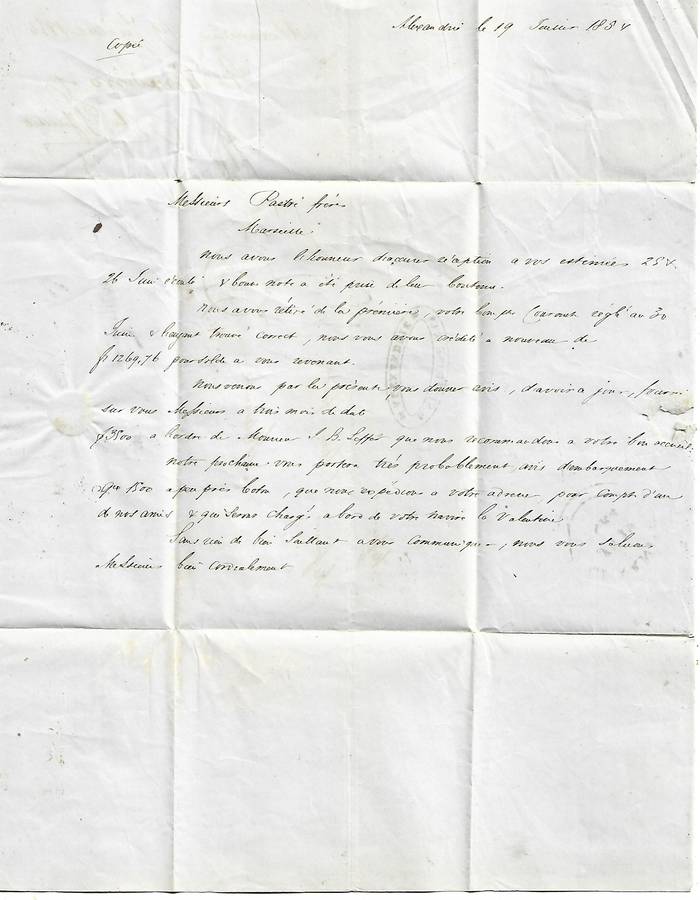 Alexandrie le 19 1854
Copie
Messieurs Pastré frères
Marseille
nous avons l'honneur d'accuser réception a vos estimées 25 &
26 Juin écoulé & bonne note a été prise de leur contenu.
nous avons retiré de la première, votre Compte Courant réglé au 30
Juin & l'ayant trouvé correct, nous vous avons crédité a nouveau de
fr 1269,76 pour solde a vous revenant.
nous venons par la présente vous donner avis, d'avoir a jour, fourni
sur vous Messieurs a trois mois de date
3500 a l'ordre de Monsieur J. B. que nous recommandons a votre bon accueil.
notre prochaine vous portera très probablement avis d'embarquement
1500 a peu près Coton, que nous expédions a votre adresse, pour Compte d'un
de nos amis & qui seront chargés a bord de votre navire la Valentine
Sans rien de bien Saillant a vous Communiquer, nous vous saluons
Messieurs bien Cordialement